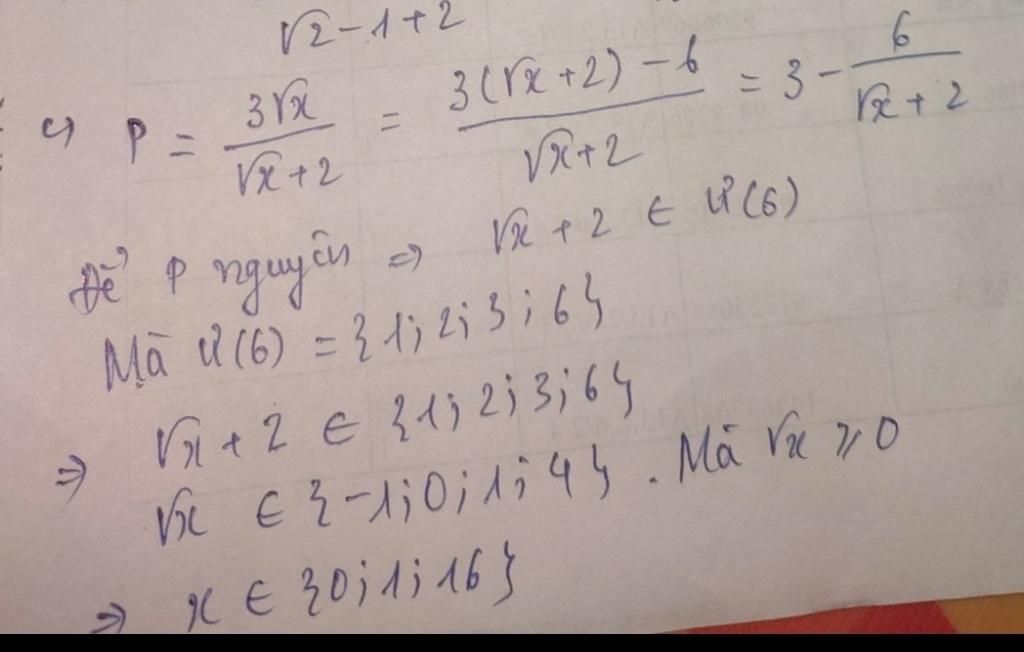 √2 - 1 + 2
c) P = 3√x / √x + 2 = 3(√x + 2) - 6 / √x + 2 = 3 - 6 / √x + 2
Để P nguyên => √x + 2 ∈ Ư(6)
Mà Ư(6) = {1; 2; 3; 6}
=> √x + 2 ∈ {1; 2; 3; 6}
√x ∈ {-1; 0; 1; 4}. Mà √x ≥ 0
=> x ∈ {0; 1; 16}